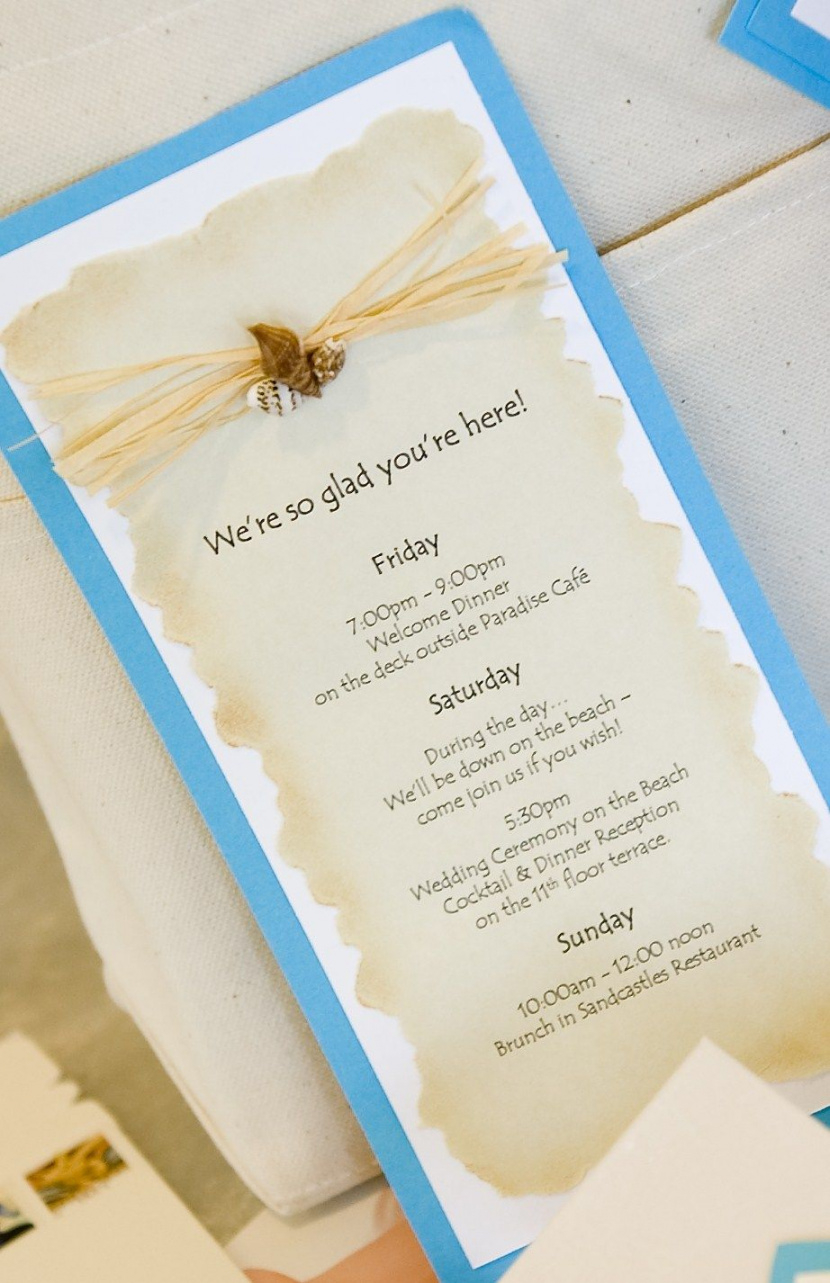 We're so glad you're here!
Friday
7:00pm - 9:00pm
Welcome Dinner
on the deck outside Paradise Café
Saturday
During the day...
We'll be down on the beach –
come join us if you wish!
5:30pm
Wedding Ceremony on the Beach
Cocktail & Dinner Reception
on the 11th floor terrace.
Sunday
10:00am - 12:00 noon
Brunch in Sandcastles Restaurant